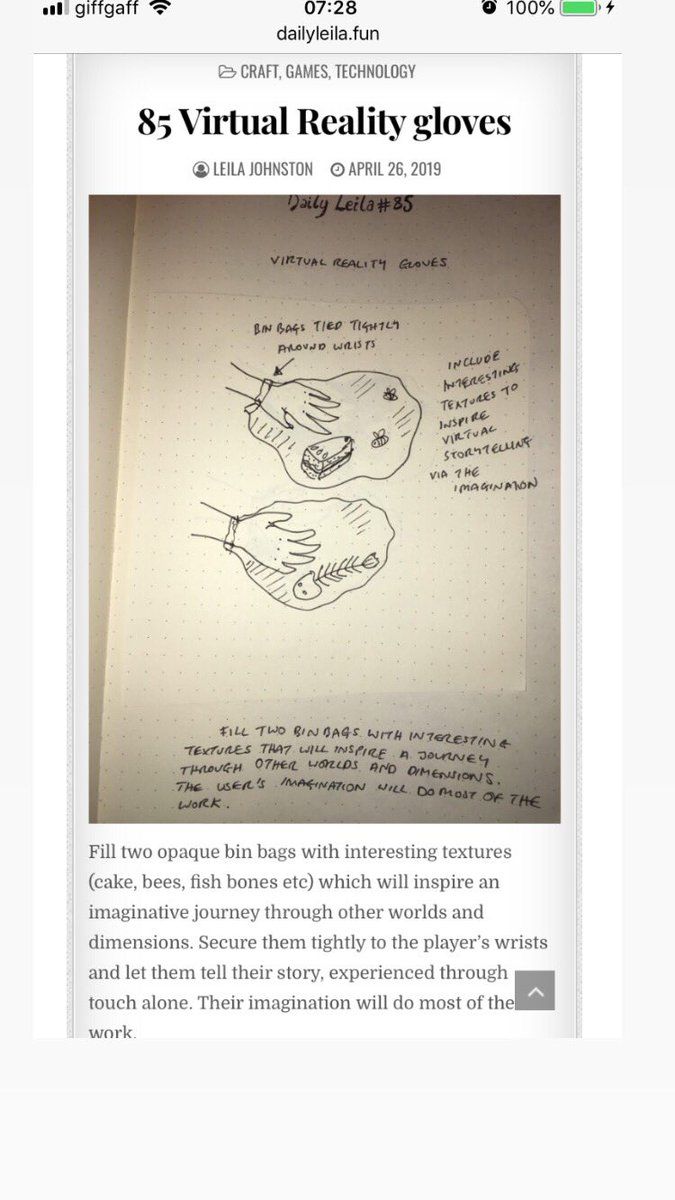 giffgaff 07:28 100%
dailyleila.fun
CRAFT, GAMES, TECHNOLOGY
85 Virtual Reality gloves
LEILA JOHNSTON APRIL 26, 2019
Daily Leila #85
VIRTUAL REALITY GLOVES
BIN BAGS TIED TIGHTLY
AROUND WRISTS
INCLUDE
INTERESTING
TEXTURES TO
INSPIRE
VIRTUAL
STORYTELLING
VIA THE
IMAGINATION
FILL TWO BIN BAGS WITH INTERESTING
TEXTURES THAT WILL INSPIRE A JOURNEY
THROUGH OTHER WORLDS AND DIMENSIONS.
THE USER'S IMAGINATION WILL DO MOST OF THE
WORK.
Fill two opaque bin bags with interesting textures
(cake, bees, fish bones etc) which will inspire an
imaginative journey through other worlds and
dimensions. Secure them tightly to the player's wrists
and let them tell their story, experienced through
touch alone. Their imagination will do most of the
work.